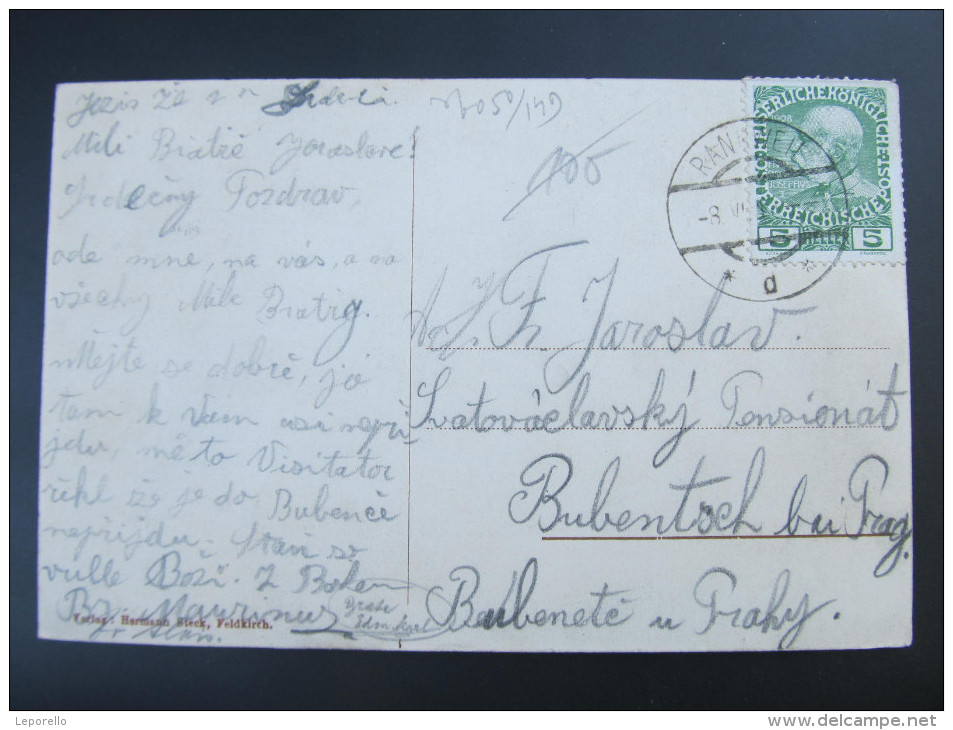 Milí Bratře Jaroslave!
Srdečný Pozdrav,
ode mne, na vás, a na
všechy Milé Bratry.
Mějte se dobře, ja
tam k Vám asi nepři
jdu, mě to Visitator
řekl že je do Bubenče
nepřijdu. Staň se
vulle Boži. Z Bohem
Br. Maurinus
Verlag: Hermann Sieck, Feldkirch.
1050/149
105
1908
KAISERLICHE KÖNIGLICHE ÖSTERREICHISCHE
5 HELLER 5
RANKWEIL
-8. VI
* a *
Fr. Jaroslav.
Svatováclavský Pensionát
Bubentsch bei Prag.
Bubeneč u Prahy.
Leporello
delcampe.net